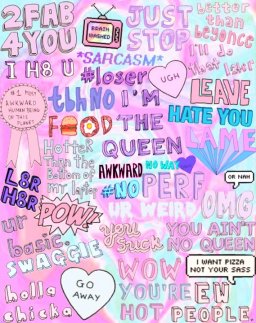 2FAB
4YOU
BRAIN
WASHED
JUST
STOP
better
than
beyonce
I H8 U
*SARCASM*
#loser
UGH
I'll do
that later
#1 MOST
AWKWARD
HUMAN BEING
ON THIS
PLANET
tbh NO
I'M
THE
QUEEN
LEAVE
HATE YOU
LAME
FOOD
HOTTER
Than the
Bottom of
my laptop
AWKWARD
NO WAY
#NO
PERF
OR NAH
L8R
H8R
POW!
UR WEIRD
OMG
ur
basic.
you
suck
YOU AIN'T
NO QUEEN
SWAGGIE
I WANT PIZZA
NOT YOUR SASS
holla
chicka
GO
AWAY
WOW
YOU'RE
HOT
EW
PEOPLE